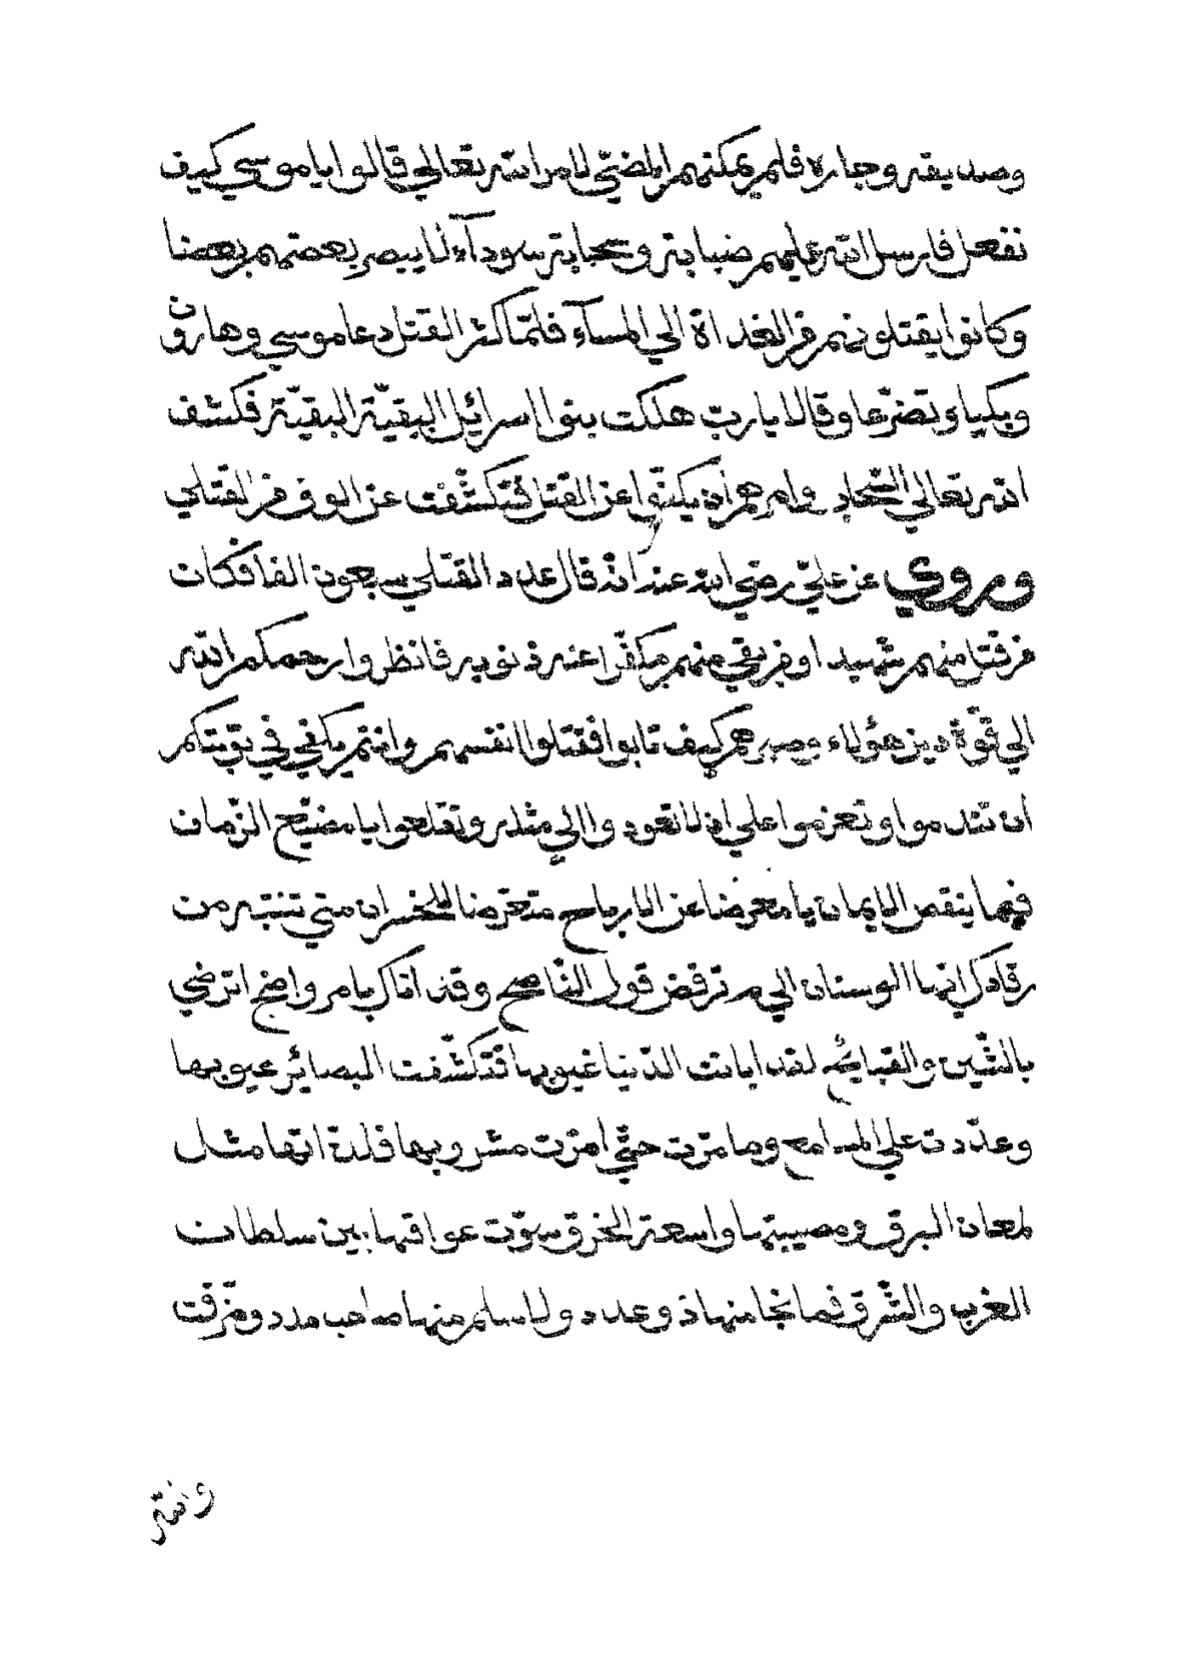 وصديقه وجاره فلم يمكنهم المضيّ لامر الله تعالي قالوا يا موسي كيف
نفعل فارسل الله عليهم ضبابة وسحابة سودآء لا يبصر بعضهم بعضا
وكانوا يقتلونهم من الغداة الي المسآء فلمّا كثر القتل دعا موسي وهارون
وبكيا وتضرّعا وقالا يا ربّ هلكت بنو اسرائيل البقيّة البقيّة فكشف
الله تعالي السّحاب وامرهم ان يكفّوا عن القتل فتكشّفت عن الوف من القتلي
وروي عن عليّ رضي الله عنه انّه قال عدد القتلي سبعون الفا فكان
من قتل منهم شهيد او من بقي منهم مكفّرا عنه ذنوبه فانظروا رحمكم الله
الي قوّة دين هؤلاء وصبرهم كيف تابوا فقتلوا انفسهم وانتم يكفي في توبتكم
ان تندموا وتعزموا علي ان لا تعود واالي مثله وتقلعوا يا مضيّع الزّمان
فيما ينقص الايمان يا معرضا عن الارباح متعرّضا للخسران متي تنتبه من
رقادك ايّها الوسنان الي م ترفض قول النّاصح وقد اتاك بامر واضح اترضي
بالشّين والقبائح لقد ابانت الدّنيا غيوبها فتكشّفت البصائر عيوبها
وعدّدت علي المسامع وما مرّت حتّي امرّت مشروبها فلذة اتها مثل
لمعان البرق ومصيبتها واسعة الخرق سوّت عواقبها بين سلطان
الغرب والشّرق فما نجا منها ذو عدد ولا سلم منها صاحب مدد ومزّقت